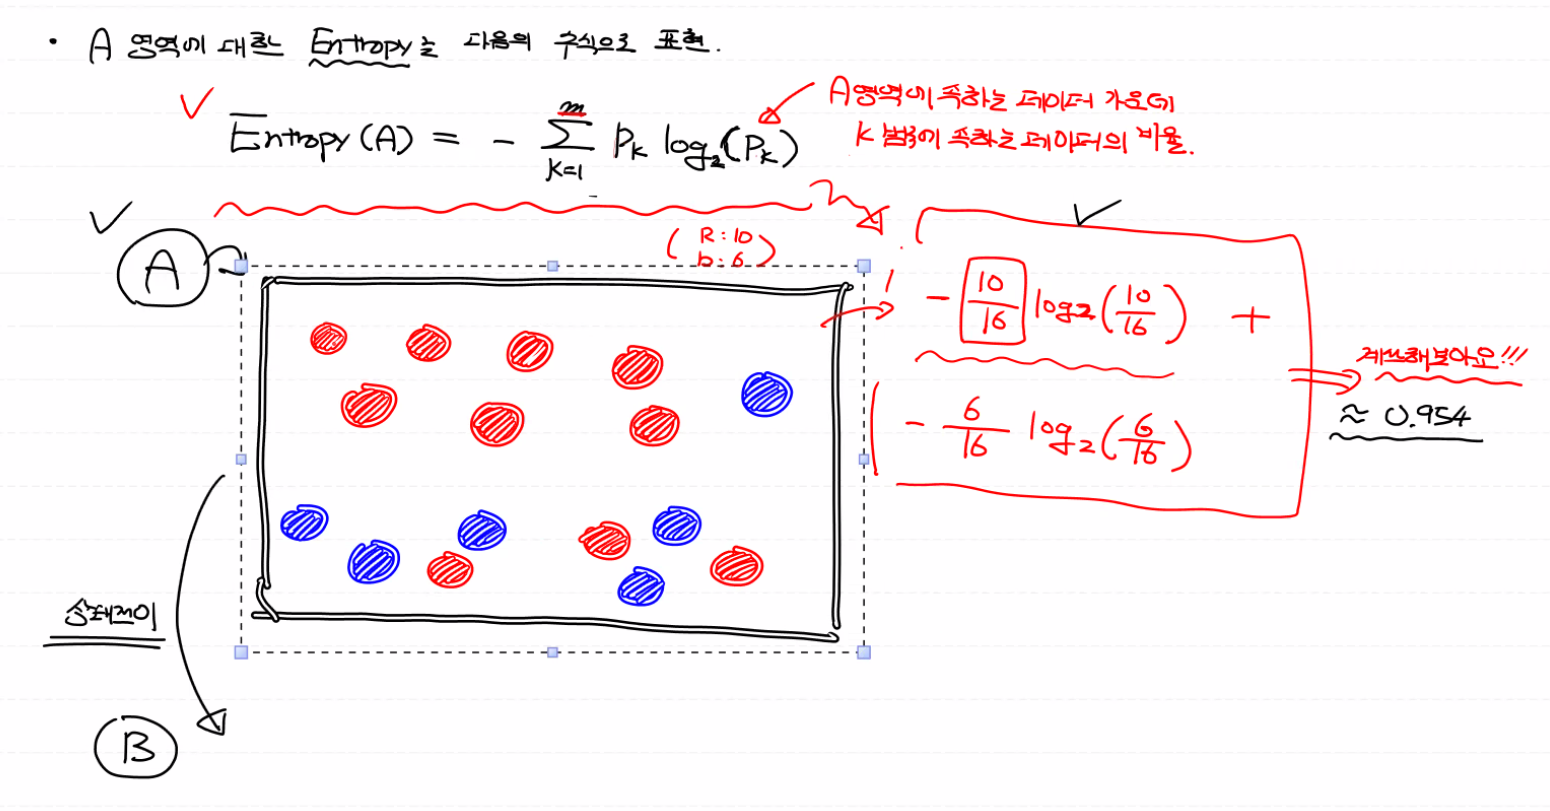 • A 영역에 대한 Entropy는 다음의 수식으로 표현.
Entropy(A) = - m ∑ k=1 Pk log2(Pk)
A영역에 속하는 데이터 가운데
K 범주에 속하는 데이터의 비율.
A
( R:10
b:6 )
- 10/16 log2(10/16) +
- 6/16 log2(6/16)
계산해보아요!!!
≈ 0.954
상태전이
B